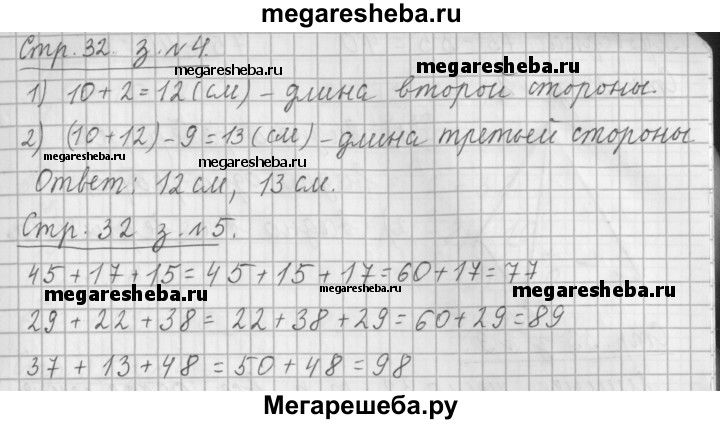 megaresheba.ru
Стр. 32. з. №4.
megaresheba.ru
megaresheba.ru
1) 10+2=12(см) – длина второй стороны.
2) (10+12)-9=13(см) – длина третьей стороны
megaresheba.ru
megaresheba.ru
Ответ: 12 см, 13 см.
Стр. 32 з. №5.
45+17+15=45+15+17=60+17=77
megaresheba.ru
megaresheba.ru
megaresheba.ru
29+22+38=22+38+29=60+29=89
37+13+48=50+48=98
Мегарешеба.ру